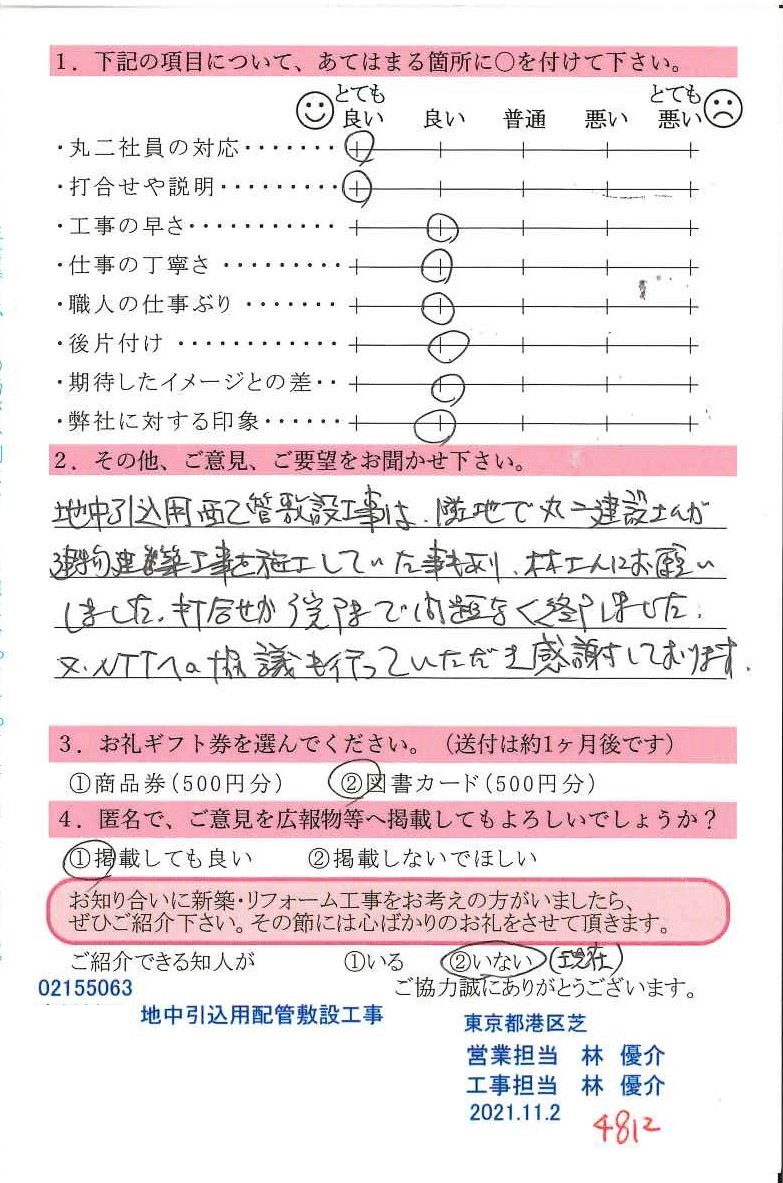 1. 下記の項目について、あてはまる箇所に○を付けて下さい。
とても良い 良い 普通 悪い とても悪い
・丸二社員の対応・・・・・・・
・打合せや説明・・・・・・・・・
・工事の早さ・・・・・・・・・・・
・仕事の丁寧さ ・・・・・・・・・
・職人の仕事ぶり ・・・・・・・
・後片付け ・・・・・・・・・・・・
・期待したイメージとの差・・
・弊社に対する印象・・・・・・
2. その他、ご意見、ご要望をお聞かせ下さい。
地中引込用配管敷設工事は、隣地で丸二建設さんが
建築工事を施工していた事もあり、林さんにお願い
しました。打合せから完了まで問題なく終了しました。
又、NTTへの協議も行っていただき感謝しております。
3. お礼ギフト券を選んでください。（送付は約1ヶ月後です）
①商品券（500円分） ②図書カード（500円分）
4. 匿名で、ご意見を広報物等へ掲載してもよろしいでしょうか？
①掲載しても良い ②掲載しないでほしい
お知り合いに新築・リフォーム工事をお考えの方がいましたら、
ぜひご紹介下さい。その節には心ばかりのお礼をさせて頂きます。
ご紹介できる知人が ①いる ②いない（現在）
02155063 ご協力誠にありがとうございます。
地中引込用配管敷設工事
東京都港区芝
営業担当 林 優介
工事担当 林 優介
2021.11.2
4812